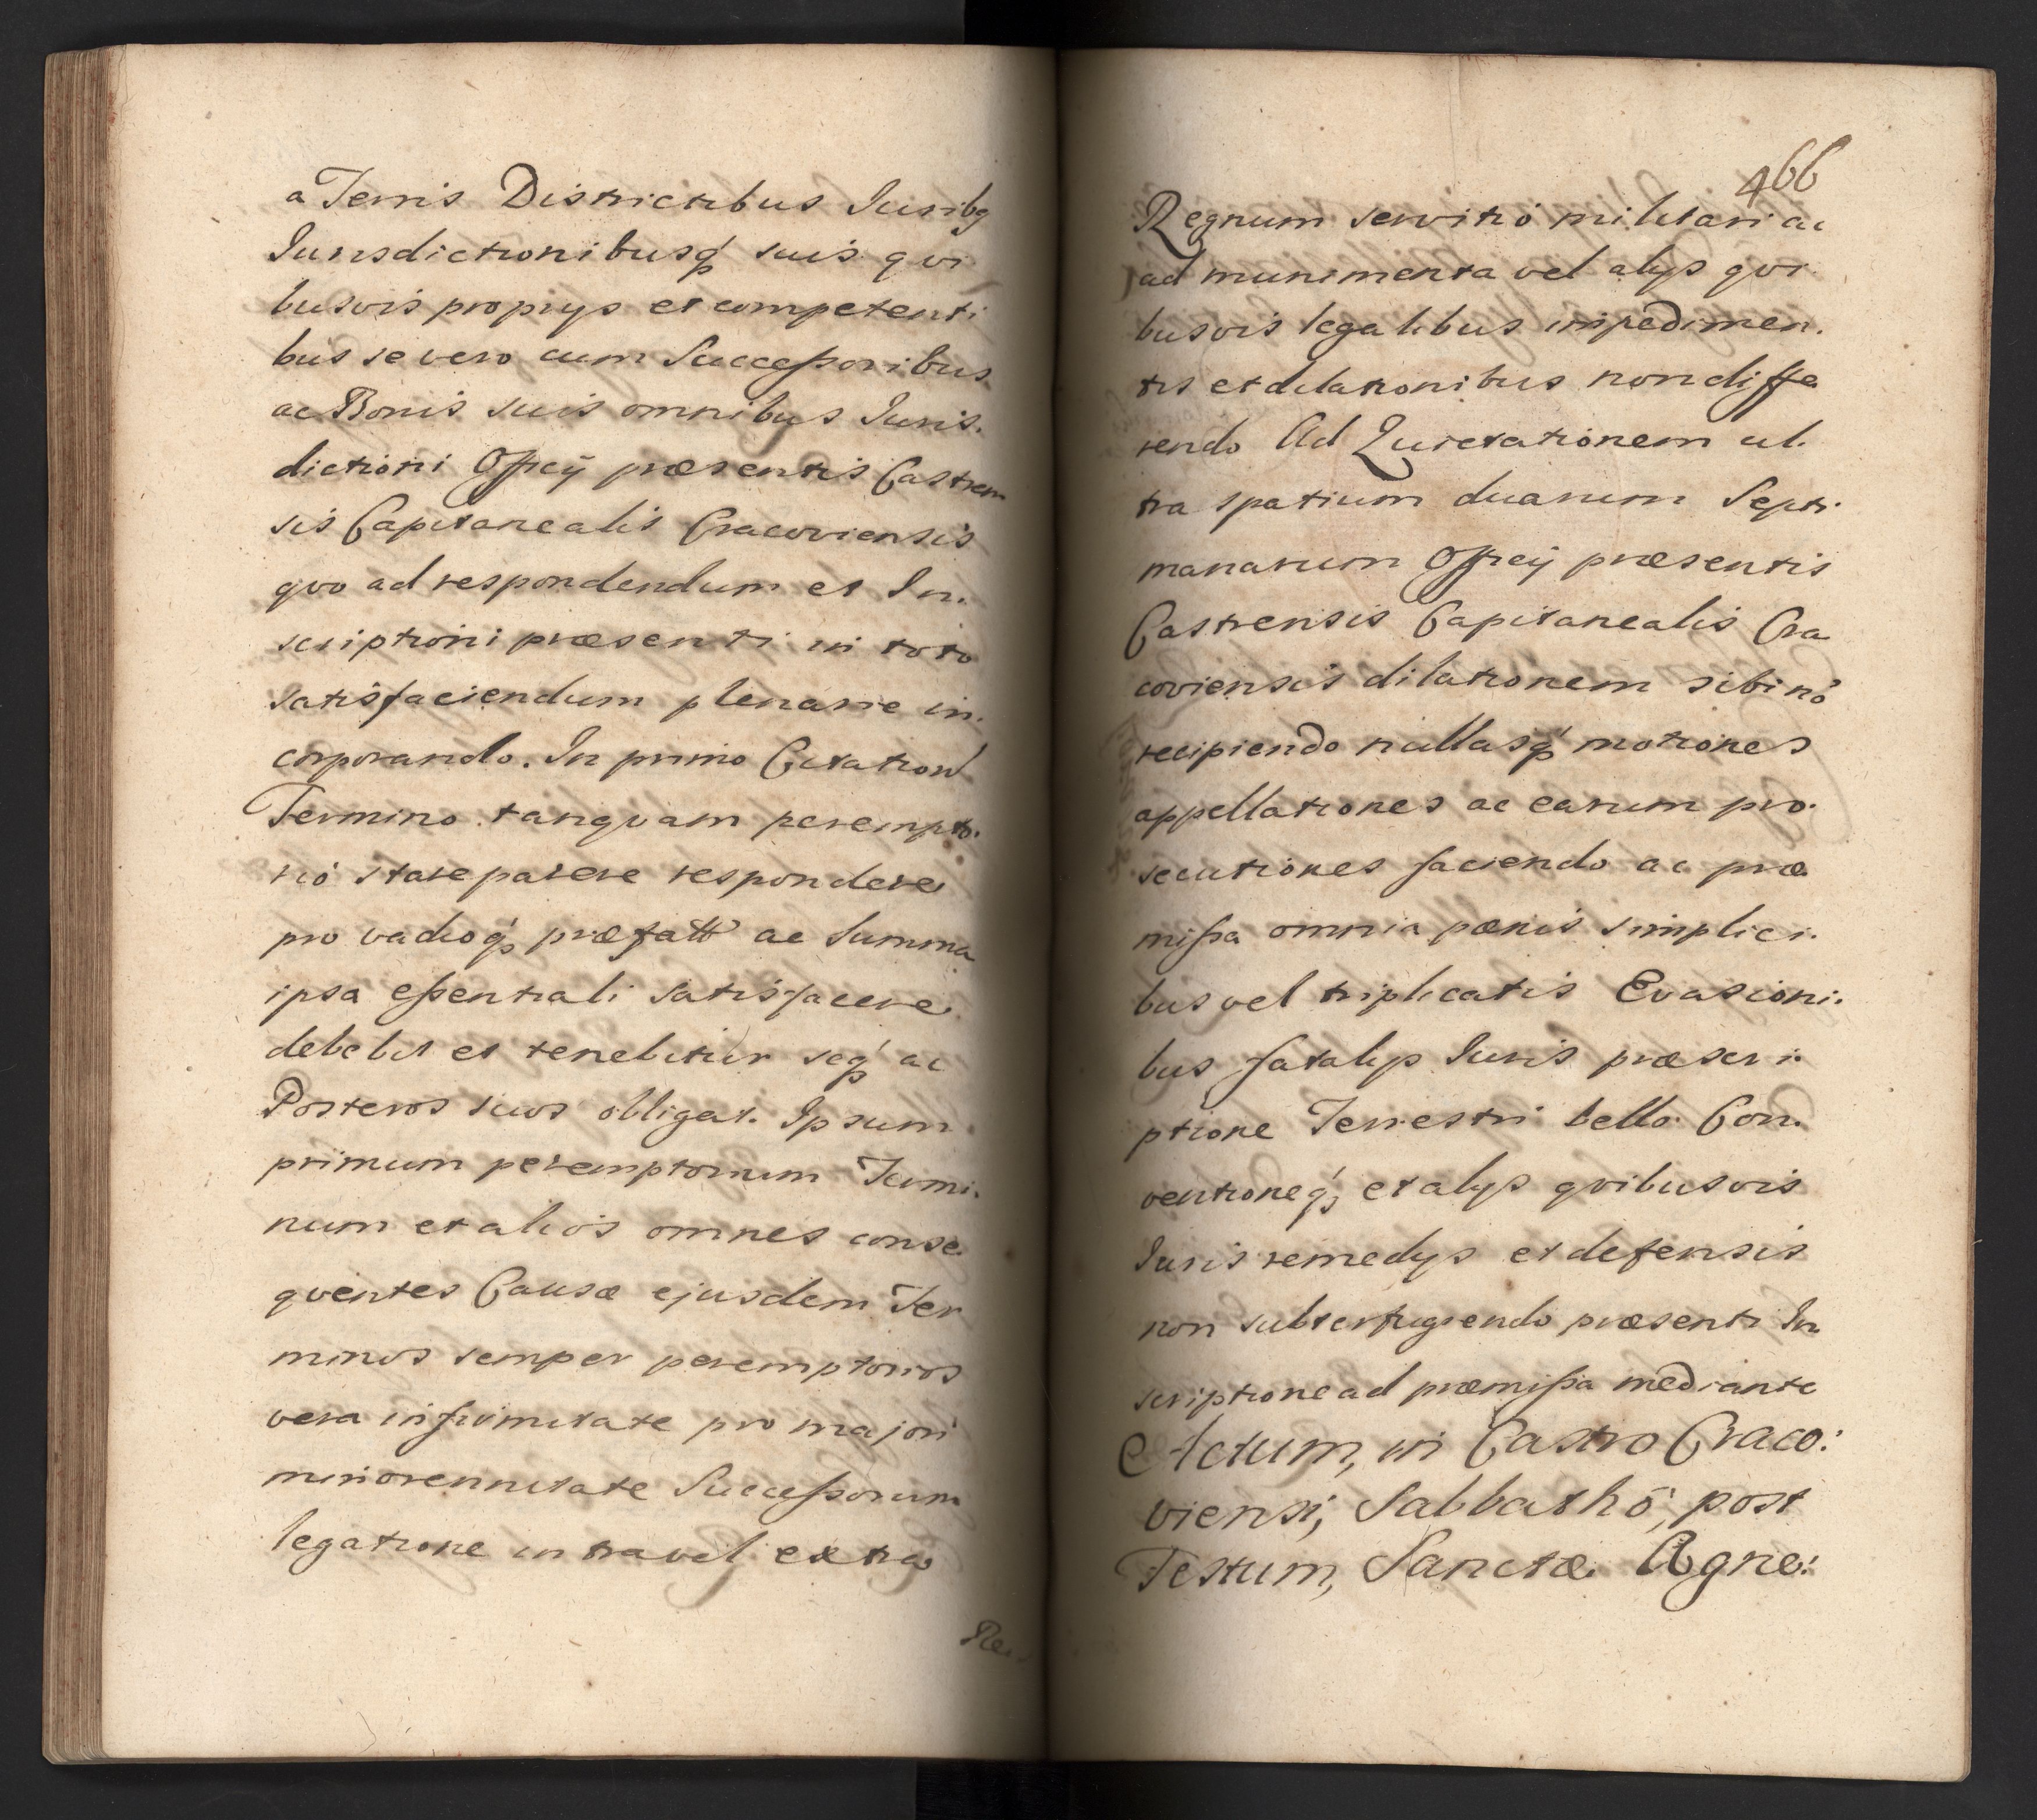 a Terris Districtibus Iuribq
Iurisdictionibusq suis qvi
busvis proprys et competenti
bus se vero cum Successoribus
ac Bonis suis omnibus Iuris.
dictioni Officÿ præsentis Castren
sis Capitanealis Cracoviensis
qvo ad respondendum et In.
scriptioni præsenti in toto
satisfaciendum plenarie in.
corporando. In primo Citation
Termino tanqvam perempto.
rió stare parere respondere
pro vadioq præfatt ac Summa
ipsa essentiali satisfacere
debebit et tenebitur seq ac
Posteros suos obligat. Ipsum
primum peremptorium Termi.
num et alios omnes conse
qventes Causæ ejusdem Ter
minos semper peremptorios
vera infirmitate pro majori
minorennitate Successorum
legatione intra vel extra
Re
466
Regnum servitió militari ac
ad munimenta vel alys qvi
busvis legalibus impedimen.
tis et dilationibus non diffe
rendo Ad Quietationem ul.
tra spatium duarum Septi.
manarum Officÿ præsentis
Castrensis Capitanealis Cra
coviensis dilationem sibi nō
recipiendo nullasq motiones
appellationes ac earum pro.
secutiones faciendo ac præ
missa omnia pænis simplici.
bus vel triplicatis Evasioni.
bus fatalys Iuris præscri
ptione Terrestri bello Con.
ventioneq, et alys qvibusvis
Iuris remedys et defensis
non subterfugiendo præsenti In
scriptione ad præmissa mediante
Actum, in Castro Craco:
viensi, Sabbathó, post
Festum, Sanctæ Agne: